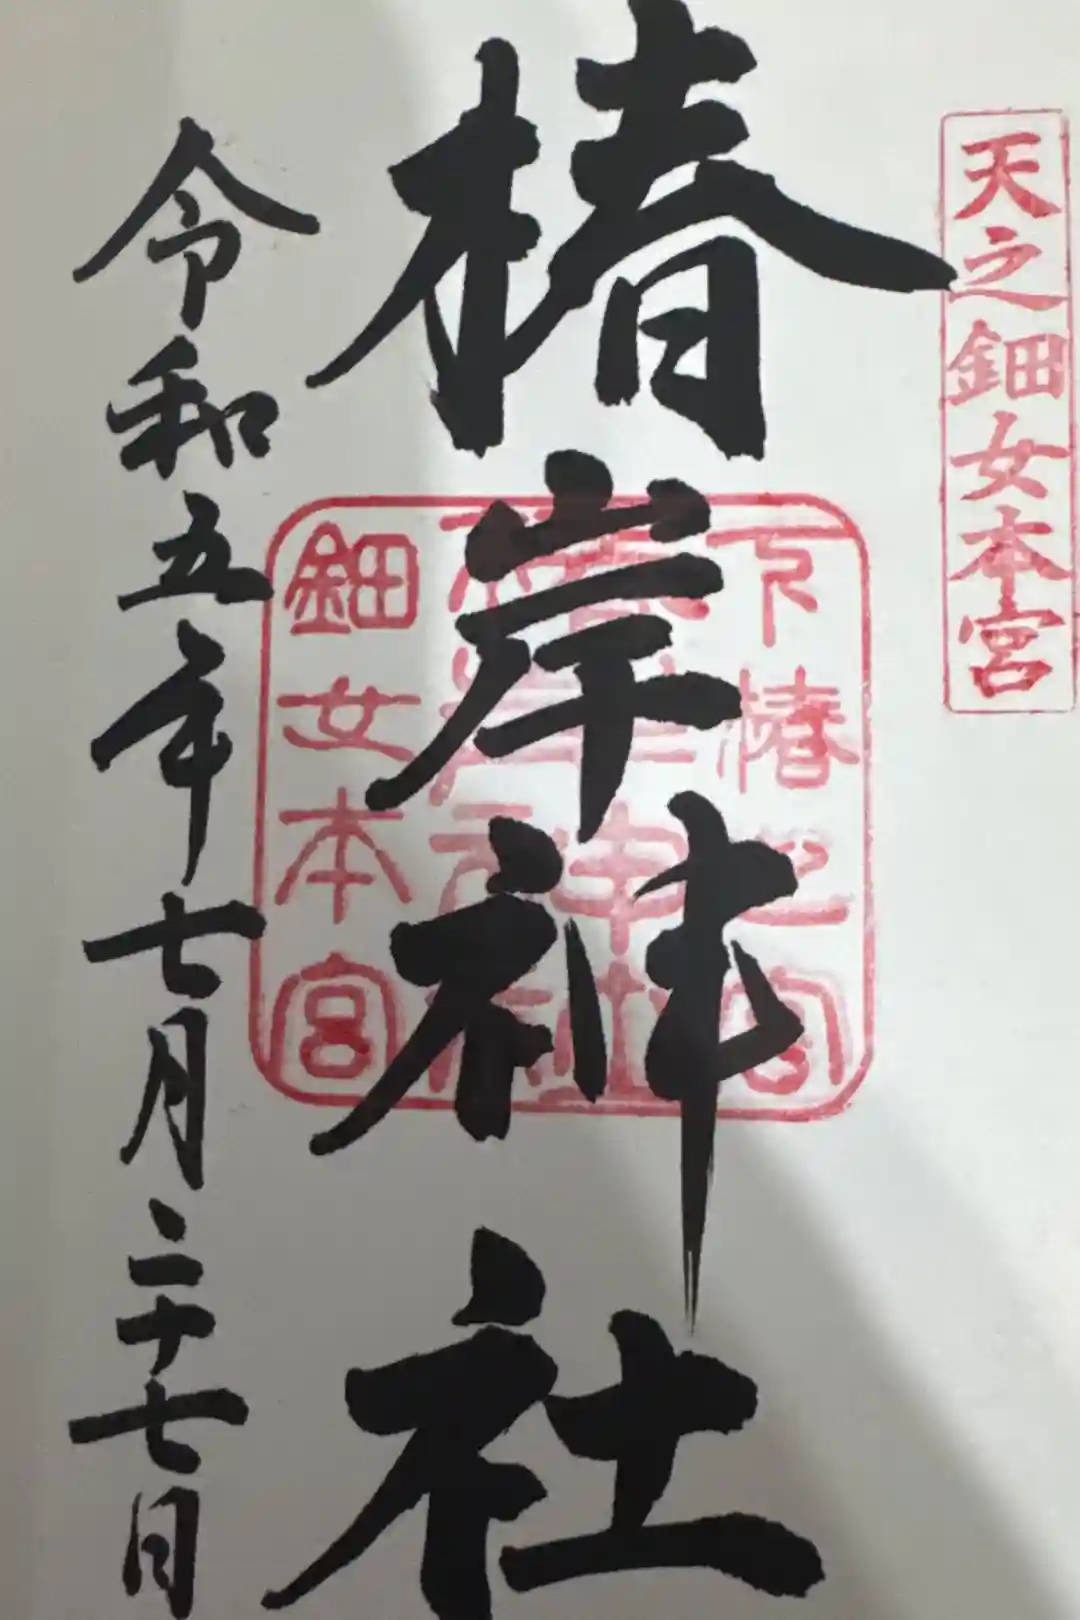 天之鈿女本宮
椿岸神社
下椿之宮
椿岸神社
鈿女本宮
令和五年七月二十七日